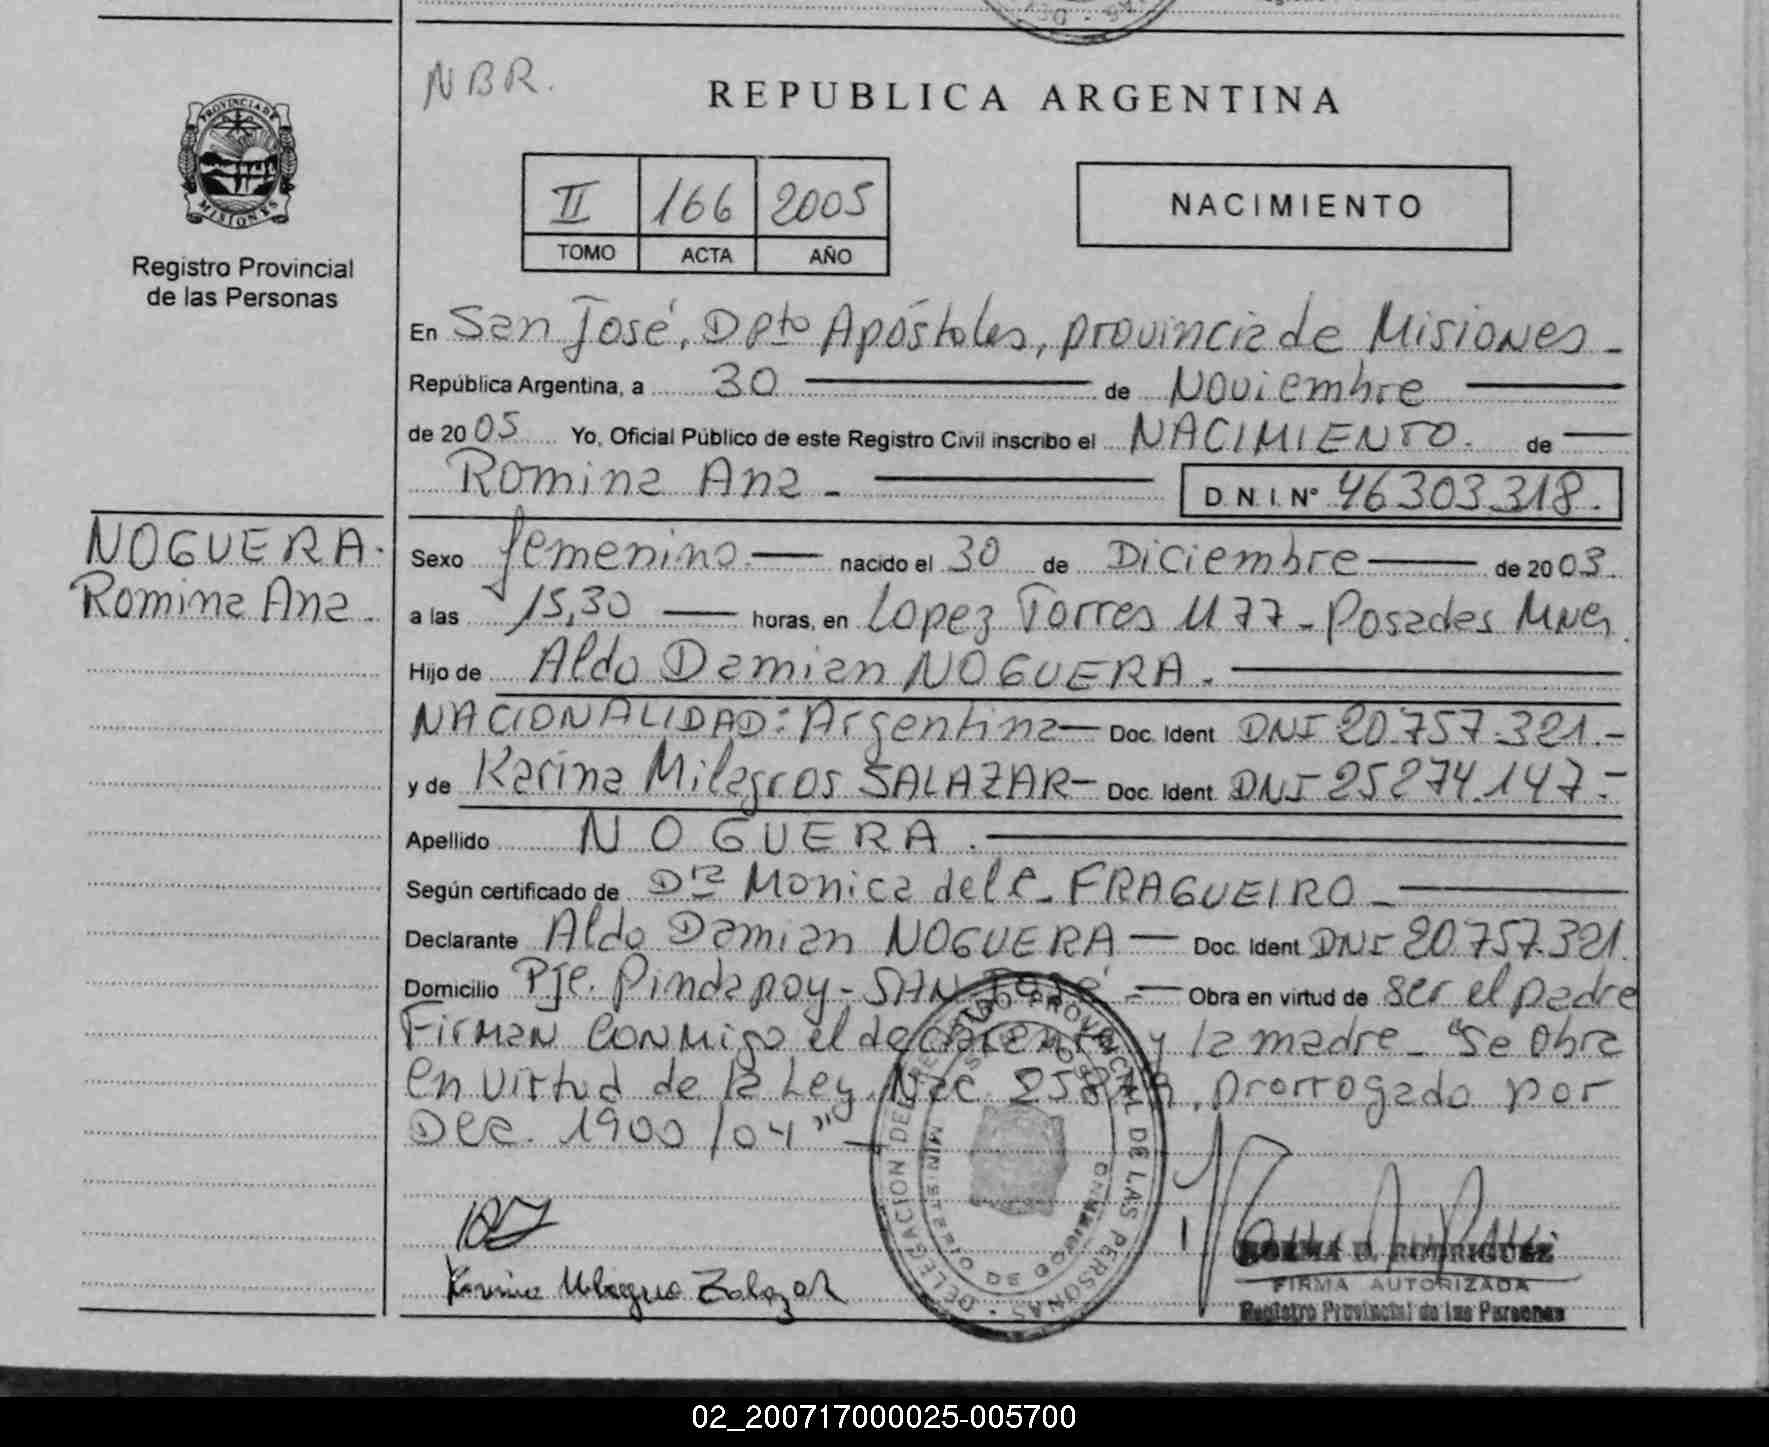 NBR.
REPUBLICA ARGENTINA
PROVINCIA DE
MISIONES
Registro Provincial
de las Personas
II 166 2005
TOMO ACTA AÑO
NACIMIENTO
En San José, Dpto Apóstoles, provincia de Misiones -
República Argentina, a 30 de Noviembre
de 2005 Yo, Oficial Público de este Registro Civil inscribo el NACIMIENTO. de
Romina Ana - D.N.I. N° 46303318.
NOGUERA.
Romina Ana.
Sexo femenino. nacido el 30 de Diciembre de 2003.
a las 15,30 horas, en Lopez Torres 1177 - Posadas Mnes.
Hijo de Aldo Damian NOGUERA.
NACIONALIDAD: Argentina Doc. Ident DNI 20.757.321.-
y de Karina Milagros SALAZAR- Doc. Ident. DNI 25274.147.-
Apellido NOGUERA.
Según certificado de Dra Monica del C. FRAGUEIRO -
Declarante Aldo Damian NOGUERA - Doc. Ident. DNI 20.757.321.
Domicilio Pje. Pindapoy - SAN José - Obra en virtud de ser el padre
Firman conmigo el declarante y la madre - "Se obra
en virtud de la Ley Nac. prorrogado por
Dec. 1900/04"-
DELEGACION DEL REGISTRO PROVINCIAL DE LAS PERSONAS
MINISTERIO DE GOBIERNO
SAN JOSE
Karina Milagros Zalazar
NORMA B. RODRIGUEZ
FIRMA AUTORIZADA
Registro Provincial de las Personas
02_200717000025-005700